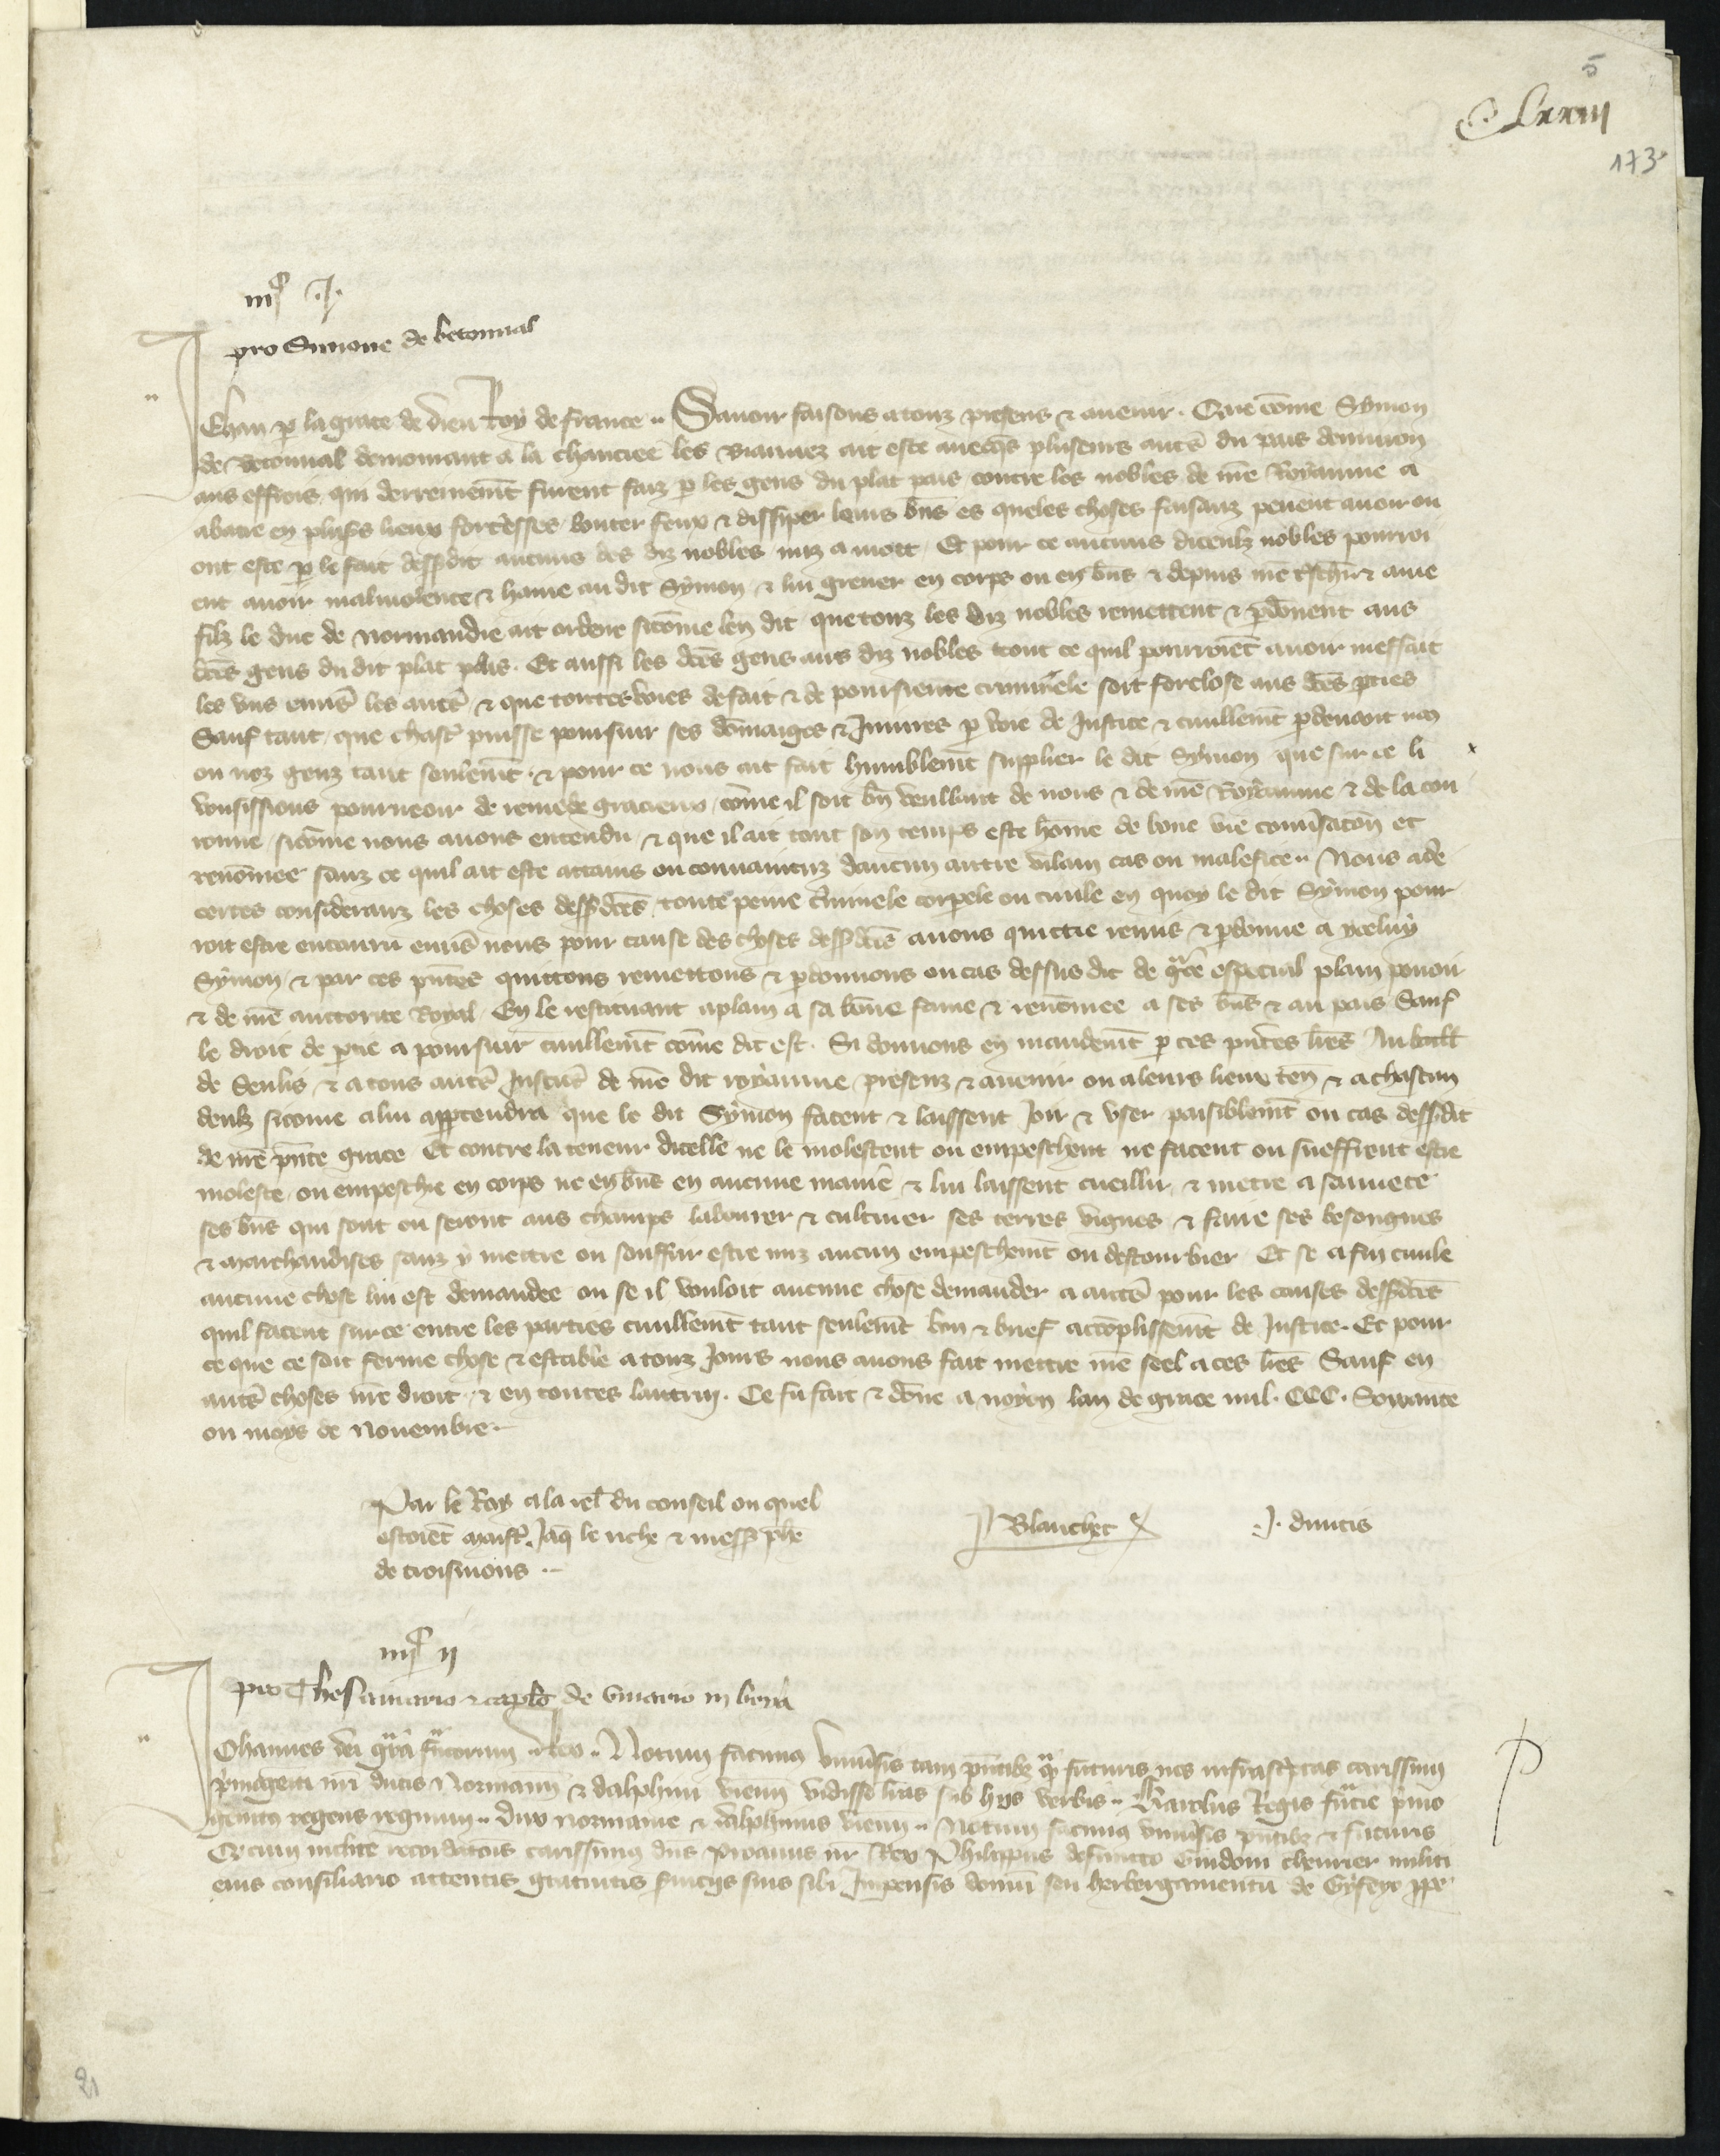 5
C Lxxiii
173
iiiᶜ .I.
pro Simone de betonual
Jehan p la grace de dieu Roy de france .. Sauoir faisons a touz presens & auenir . Que cōme Symon
de Betonual demourant a la chauciee les ait este auecqs pluseurs autrs du pais denuiron
aus effrois qui derrenieremt furent faiz p les gens du plat pais contre les nobles de nre Royaume a
abatre en plusrs lieux forteresses bouter feux & dissiper leurs bns es queles choses faisanz peuent auoir ou
ont este p le fait dessusdit aucuns des diz nobles miz a mort . Et pour ce aucuns diceulz nobles pourroi
ent auoir maliuolence & haine au dit Symon & lui greuer en corps ou en bns & depuis nre treschier & aine
filz le duc de Normandie ait ordene sicōme len dit que touz les diz nobles remettent & pdonent aus
dctes gens du dit plat pais . Et aussi les dctes gens aus diz nobles tout ce quil pourroiēt auoir meffait
les uns enuers les autrs & que toutes voies de fait & de poursieute criminele soit forclose aus dctes pties
Sauf tant que chascū puisse poursuir ses dōmaiges & Iniures p voie de Justice & ciuillemt pdeuant nos
ou noz genz tant seulemt . & pour ce nous ait fait humblemt supplier le dit Symon que sur ce li
vousissions pourueoir de remede gracieux / cōme il soit bn veullant de nous & de nre Royaume & de la cou
ronne / sicōme nous auons entendu / & que il ait tout son temps este hōme de bone vie conuersacōn et
renōmee sanz ce quil ait este attains ou conuaincuz daucun autre vilain cas ou malefice .. Nous ade
certes consideranz les choses dessusdctes toute peine criminele corpele ou ciuile en quoy le dit Symon pour
roit estre encouru enuers nous pour cause des choses dessusdctes auons quictie remis & pdonne a yceluy
Symon & par ces pntes quittons remettons & pdonnons ou cas dessus dit de grace especial plain pouoir
& de nre auctorite Royal En le restituant aplain a sa bōne fame & renōmee a ses bns & au pais Sauf
le droit de ptie a poursuir ciuillemt cōme dit est . Si donnons en mandemt p ces pntes lres Au baill
de Senlis & a tous autrs Justiciers de nre dit royaume presenz & auenir ou a leurs lieux ten & a chascun
deulz sicome a lui apptendra que le dit Symon facent & laissent Joir & vser paisiblemt ou cas dessusdit
de nre pnte grace Et contre la teneur dicelle ne le molestent ou empeschent ne facent ou sueffrent estre
moleste ou empeschie en corps ne en bns en aucune maniere & lui laissent cueillir & metre a sauuete
ses bns qui sont ou seront aus champs labourer & cultiuer ses terres vignes & faire ses besongnes
& marchandises sanz y mettre ou souffrir estre miz aucun empeschemt ou destourbier Et se a fin ciuile
aucune chose lui est demandee ou se il vouloit aucune chose demander a autre pour les causes dessusdctes
quil facent sur ce entre les parties ciuillemt tant seulemt bon & brief accōplissemt de Justice . Et pour
ce que ce soit ferme chose & estable a touz Jours nous auons fait mettre nre seel a ces lres Sauf en
autrs choses nre droit & en toutes lautruy . Ce fu fait & done a noyon lan de grace mil . CCC . Soixante
ou moys de Nouembre .
Par le Roy a la rel du conseil ou quel
estoiēt maistr Jaq le riche & mess phe
de troismons ..
P Blanchet
J . diuitis
iiiiᶜ ii
pro Thesaurario & caplo de viuario in bria
Johannes dei gra francorum Rex .. Notum facimus vniuersis tam pntibz qm futuris nos infrascptas carissimi
primogeniti nri ducis Normann & dalphini vienn vidisse lras sub hijs verbis .. Karolus Regis francie primo
genitus regens regnum .. dux normanie & dalphinus vienn .. Notum facimus vniuersis pntibz & futuris
Q cum inclite recordacōis carissimus dns proauus nr Rex Philippus defuncto Guidoni cheurier militi
eius consiliario attentis gratuitis seruicijs suis sibi Impensis domū seu herbergamentū de ppe
21